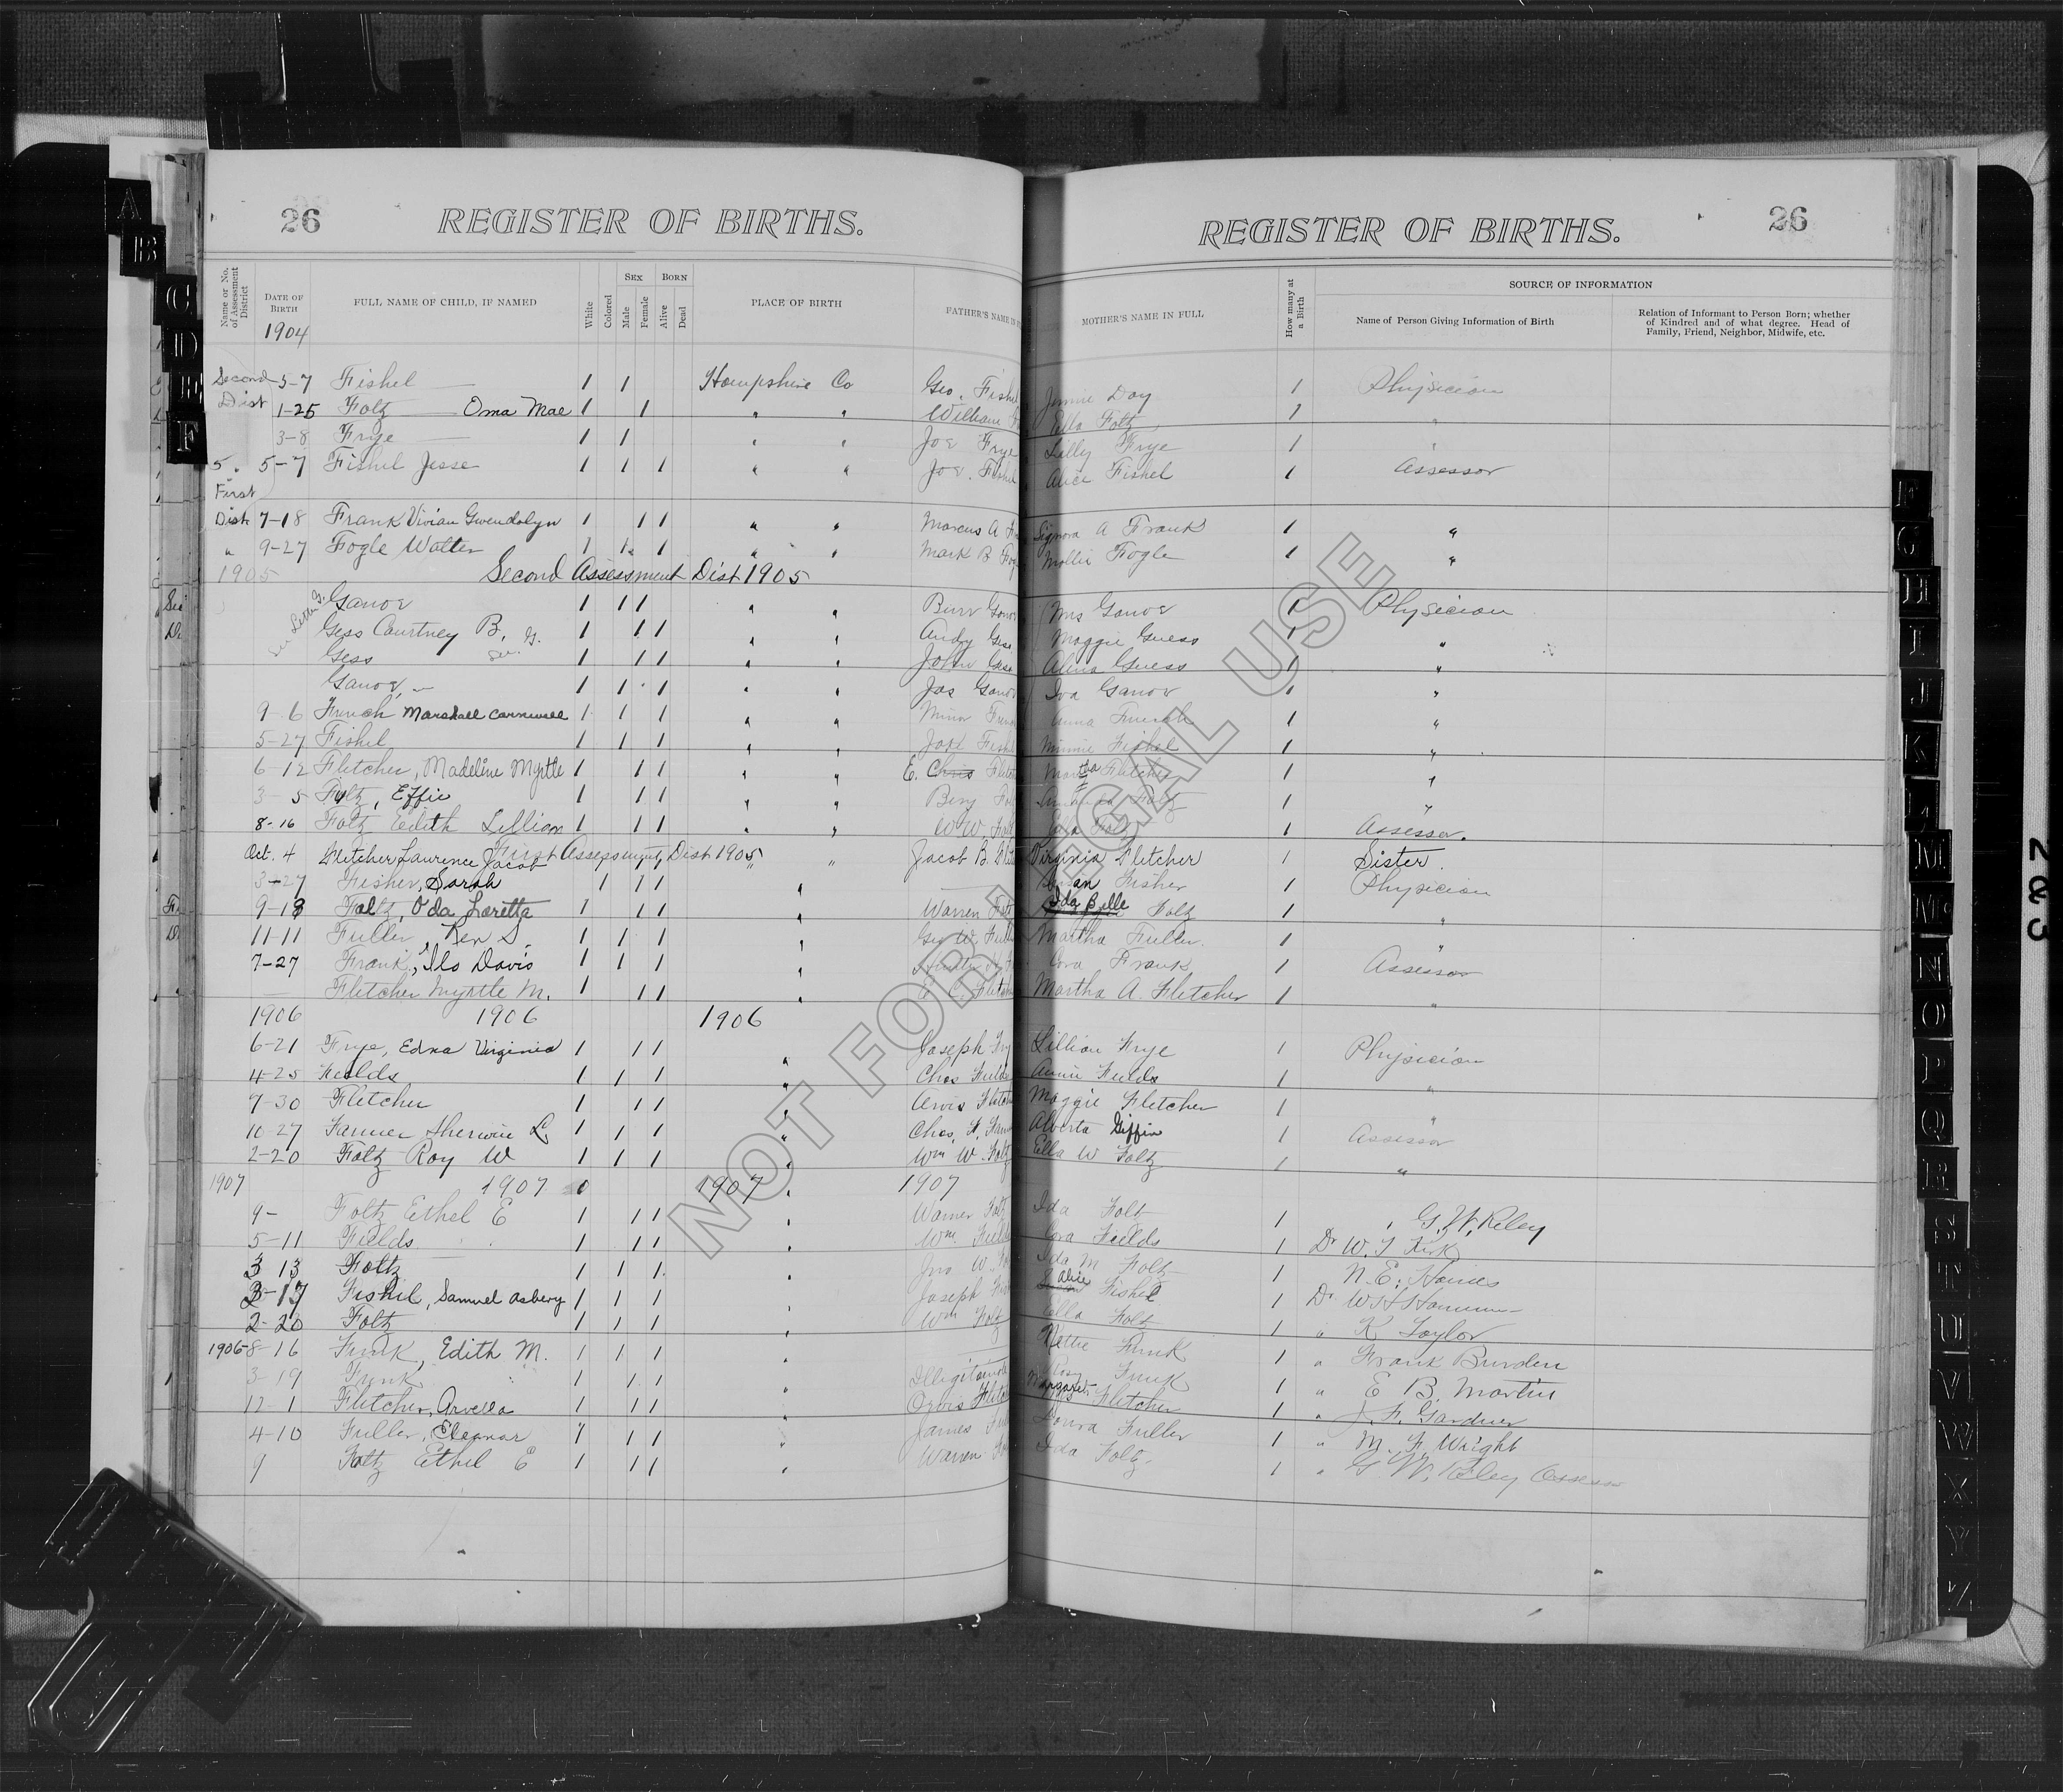 26 REGISTER OF BIRTHS. REGISTER OF BIRTHS. 26
Name or No. of Assessment District
DATE OF BIRTH
1904
FULL NAME OF CHILD, IF NAMED
White
Colored
SEX
Male
Female
BORN
Alive
Dead
PLACE OF BIRTH
FATHER'S NAME IN
MOTHER'S NAME IN FULL
How many at a Birth
SOURCE OF INFORMATION
Name of Person Giving Information of Birth
Relation of Informant to Person Born; whether
of Kindred and of what degree. Head of
Family, Friend, Neighbor, Midwife, etc.
Second 5-7 Fishel 1 1 Hampshire Co Geo. Fishel Jennie Day 1 Physician
Dist 1-25 Foltz Oma Mae 1 1 " " William Ella Foltz 1 "
3-8 Frye 1 1 " " Joe Frye Lilly Frye 1 "
5 " 5-7 Fishel Jesse 1 1 1 " " Joe. Fishel Alice Fishel 1 Assessor
First
Dist 7-18 Frank Vivian Gwendolyn 1 1 1 " " Marcus A Signora A Frank 1 "
" 9-27 Fogle Walter 1 1 1 " " Mark B Fog Mollie Fogle 1 "
1905 Second Assessment Dist 1905
See Letter G. Ganoe 1 1 1 " " Burr Ganoe Mrs Ganoe 1 Physician
Gess Courtney B. See. G. 1 1 1 " " Andy Gess Maggie Guess 1 "
Gess 1 1 1 " " John Gess Alma Guess 1 "
Ganoe, 1 1 1 " " Jas Ganoe Iva Ganoe 1 "
9-6 French Marshall Cornwell 1 1 1 " " Minor French Anna French 1 "
5-27 Fishel 1 1 1 " " Jake Fishel Minnie Fishel 1 "
6-12 Fletcher, Madeline Myrtle 1 1 1 " " E. Chris Fletch Martha Fletcher 1 "
3-5 Foltz, Effie 1 1 1 " " Benj Foltz Amanda Foltz 1 "
8-16 Foltz Edith Lillian 1 1 1 " " W W. Foltz Ella Foltz 1 Assessor.
First Assessment Dist 1905
Oct. 4 Fletcher Laurence Jacob " " Jacob B. Flet Virginia Fletcher 1 Sister.
3-27 Fisher, Sarah 1 1 1 " Susan Fisher 1 Physician
9-18 Foltz, Oda Loretta 1 1 1 " Warren Foltz Ida Belle Foltz 1 "
11-11 Fuller, Ken S. 1 1 1 " Geo W. Full Martha Fuller. 1 "
7-27 Frank, Ilo Davis 1 1 1 " Cora Frank 1 Assessor
Fletcher Myrtle M. 1 1 1 " E C. Fletcher Martha A. Fletcher 1 "
1906 1906 1906
6-21 Frye, Edna Virginia 1 1 1 " Joseph Fry Lillian Frye 1 Physician
4-25 Fields 1 1 1 " Chas Fields Annie Fields 1 "
9-30 Fletcher 1 1 1 " Arvis Fletch Maggie Fletcher 1 "
10-27 Farmer Sherwin L. 1 1 1 " Chas. F. Farm Alberta Giffin 1 Assessor
2-20 Foltz Roy W 1 1 1 " Wm W. Foltz Ella W Foltz 1 "
1907 1907 1907 " 1907
9- Foltz Ethel E 1 1 1 " Warner Foltz Ida Foltz 1 " G. W. Riley
5-11 Fields 1 1 1 " Wm. Fields Cora Fields 1 Dr W. T Kirk
3 13 Foltz 1 1 1 " Jno W. Ida M Foltz 1 N. E. Haines
3-17 Fishel, Samuel Asbery 1 1 1 " Joseph Alice Fishel 1 Dr W H
2-20 Foltz 1 1 1 " Wm Foltz Ella Foltz 1 " K Taylor
1906-8-16 Funk, Edith M. 1 1 1 " Nettie Funk 1 " Frank Burden
3-19 Funk 1 1 1 " Illegitimate Funk 1 " E B. Martin
12-1 Fletcher, Arvella 1 1 1 " Orvis Fletch Margaret Fletcher 1 " J. F. Gardner
4-10 Fuller, Eleanor 1 1 1 " James Fuller 1 " M. F. Wright
9 Foltz Ethel E 1 1 1 " Warren Ida Foltz 1 " G W. Riley Assessor
NOT FOR LEGAL USE
A
B
C
D
E
F
F
G
H
I
J
K
L
M
Mc
N
O
P
Q
R
S
T
U
V
W
X
Y
Z
2 & 3